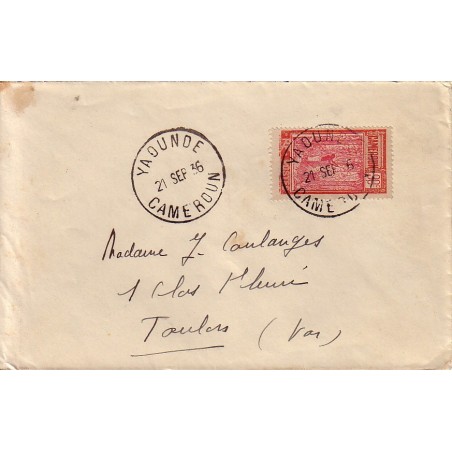 YAOUNDE
21 SEP 36
CAMEROUN
YAOUNDE
21 SEP 36
CAMEROUN
Madame J. Coulanges
1 Clos Fleuri
Toulon (Var)